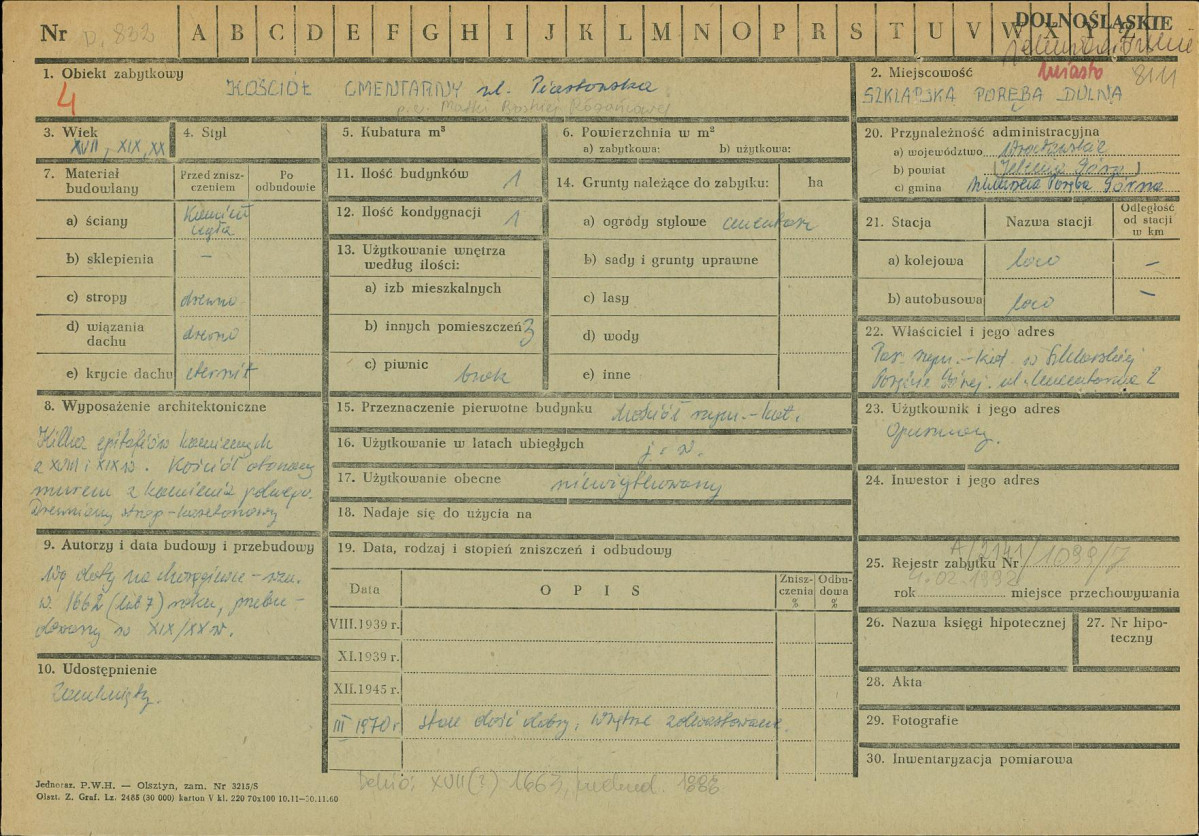 Nr D. 832 A B C D E F G H I J K L M N O P R S T U V W X Y Z
DOLNOŚLĄSKIE
1. Obiekt zabytkowy KOŚCIÓŁ CMENTARNY ul. Piastowska
4
p.w. Matki Boskiej Różańcowej
2. Miejscowość miasto 8111
SZKLARSKA PORĘBA DOLNA
3. Wiek XVII, XIX, XX
4. Styl
5. Kubatura m³
6. Powierzchnia w m²
a) zabytkowa: b) użytkowa:
7. Materiał budowlany
Przed zniszczeniem
Po odbudowie
a) ściany Kamień cegła
b) sklepienia –
c) stropy drewno
d) wiązania dachu drewno
e) krycie dachu eternit
8. Wyposażenie architektoniczne
Kilka epitafiów kamiennych
z XVIII i XIX w. Kościół otoczony
murem z kamienia polnego.
Drewniany strop – kasetonowy
9. Autorzy i data budowy i przebudowy
Wg daty na chorągiewce –
w 1662 (lub 7) roku, przebu-
dowany w XIX/XX w.
10. Udostępnienie
Zamknięty.
11. Ilość budynków 1
12. Ilość kondygnacji 1
13. Użytkowanie wnętrza
według ilości:
a) izb mieszkalnych
b) innych pomieszczeń 3
c) piwnic brak
14. Grunty należące do zabytku: ha
a) ogrody stylowe cmentarz
b) sady i grunty uprawne
c) lasy
d) wody
e) inne
15. Przeznaczenie pierwotne budynku kościół rzym.-kat.
16. Użytkowanie w latach ubiegłych j. w.
17. Użytkowanie obecne nieużytkowany
18. Nadaje się do użycia na
19. Data, rodzaj i stopień zniszczeń i odbudowy
Data
O P I S
Zniszczenia %
Odbudowa %
VIII.1939 r.
XI.1939 r.
XII.1945 r.
III 1970 r. stan dość dobry, wnętrze zdewastowane.
Dehio: XVII (?) 1663, 1883
20. Przynależność administracyjna
a) województwo Wrocławskie
b) powiat (Jelenia Góra)
c) gmina Szklarska Poręba Górna
21. Stacja
Nazwa stacji
Odległość od stacji w km
a) kolejowa loco –
b) autobusowa loco –
22. Właściciel i jego adres
Par. rzym.-kat. w Szklarskiej
Porębie Górnej. ul. Cmentarna 2
23. Użytkownik i jego adres
Opuszczony.
24. Inwestor i jego adres
25. Rejestr zabytku Nr A/2141/1099/J
rok 4.02.1992 miejsce przechowywania
26. Nazwa księgi hipotecznej
27. Nr hipoteczny
28. Akta
29. Fotografie
30. Inwentaryzacja pomiarowa
Jednoraz. P.W.H. — Olsztyn, zam. Nr 3215/S
Olszt. Z. Graf. Lz. 2485 (30 000) karton V kl. 220 70x100 10.11—30.11.60